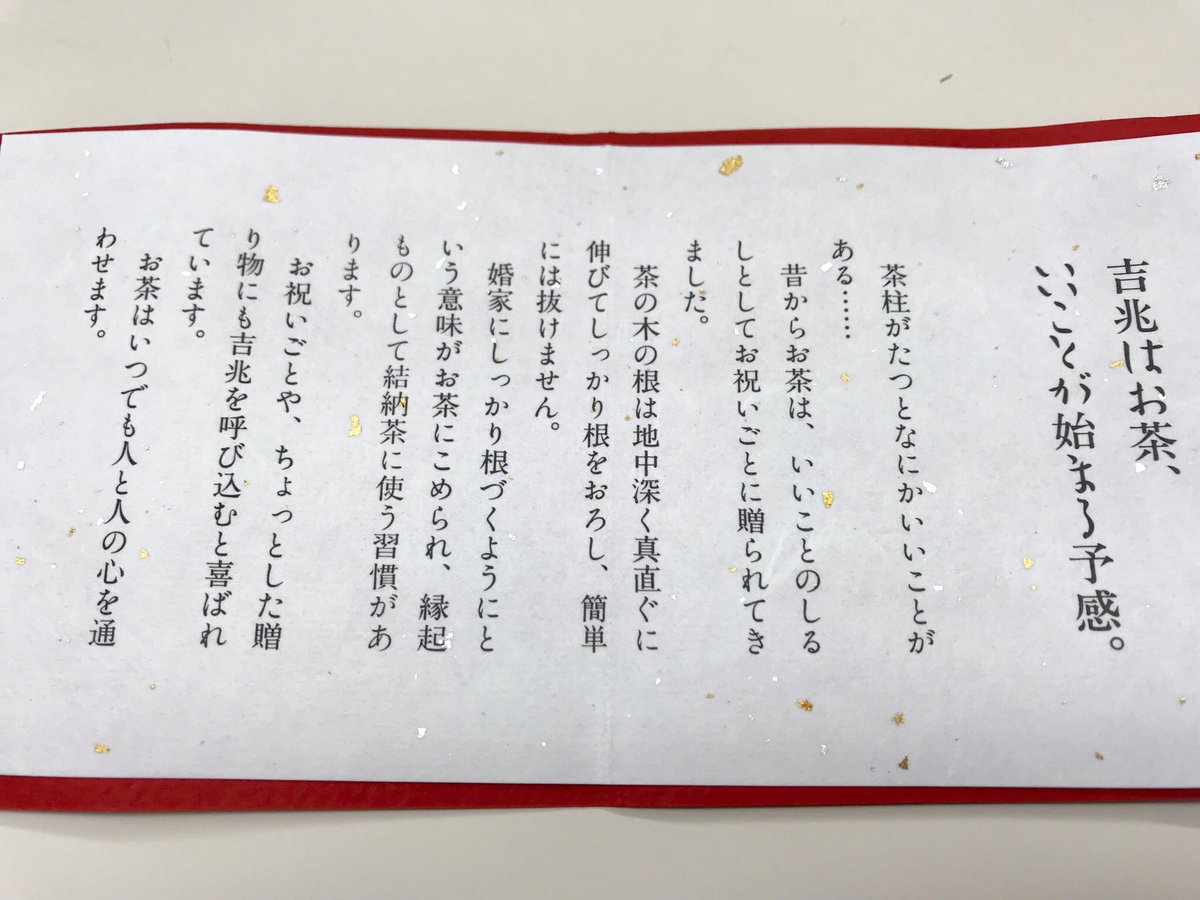 吉兆はお茶、
いいことが始まる予感。
茶柱がたつとなにかいいことが
ある……
昔からお茶は、いいことのしる
しとしてお祝いごとに贈られてき
ました。
茶の木の根は地中深く真直ぐに
伸びてしっかり根をおろし、簡単
には抜けません。
婚家にしっかり根づくようにと
いう意味がお茶にこめられ、縁起
ものとして結納茶に使う習慣があ
ります。
お祝いごとや、ちょっとした贈
り物にも吉兆を呼び込むと喜ばれ
ています。
お茶はいつでも人と人の心を通
わせます。